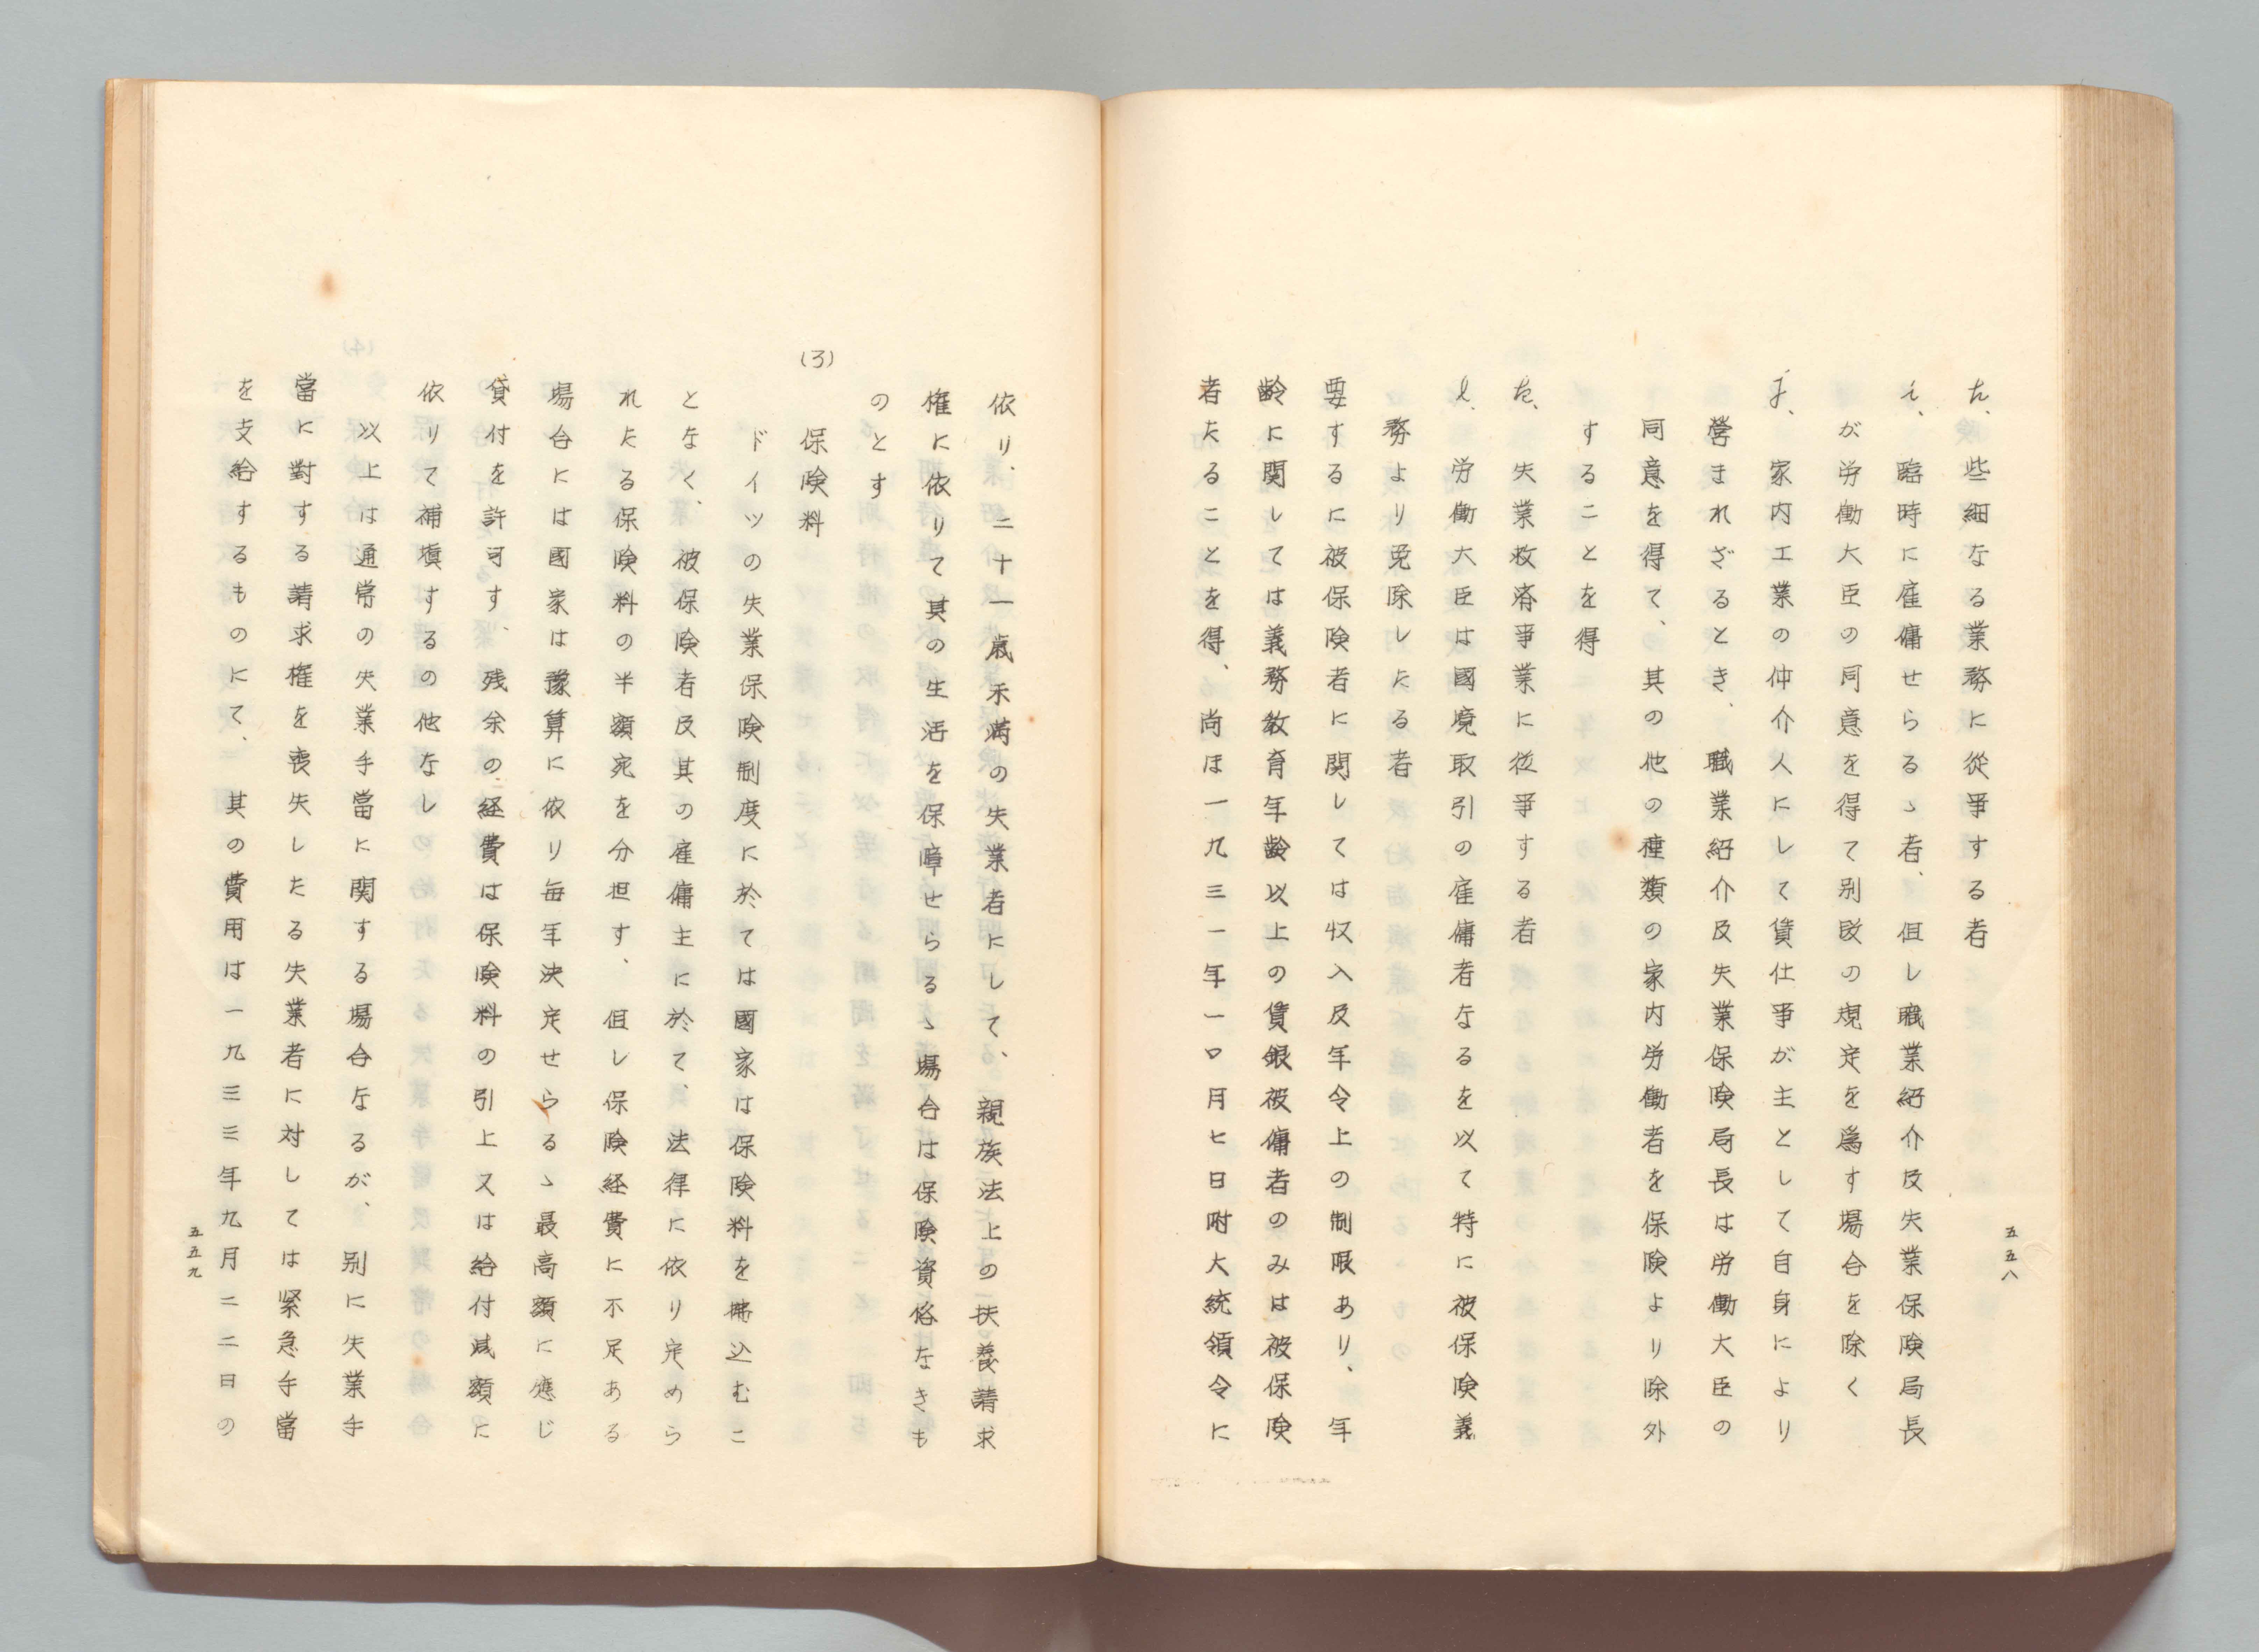 h、些細なる業務に從亊する者
i、臨時に雇傭せらるゝ者、但し職業紹介及失業保険局長
が労働大臣の同意を得て別段の規定を為す場合を除く
j、家内工業の仲介人にして賃仕亊が主として自身により
営まれざるとき、職業紹介及失業保険局長は労働大臣の
同意を得て、其の他の種類の家内労働者を保険より除外
することを得
k、失業救済亊業に従亊する者
l、労働大臣は國境取引の雇傭者なるを以て特に被保険義
務より免除したる者
要するに被保険者に関しては収入及年令上の制限あり、年
齢に関しては義務教育年齢以上の賃銀被傭者のみは被保険
者たることを得、尚ほ一九三一年一〇月七日附大統領令に
五五八
依り、二十一歳未満の失業者にして、親族法上の扶養請求
権に依りて其の生活を保障せらるゝ場合は保険資格なきも
のとす
(3) 保険料
ドイツの失業保険制度に於ては國家は保険料を拂込むこ
となく、被保険者及其の雇傭主に於て、法律に依り定めら
れたる保険料の半額宛を分担す、但し保険経費に不足ある
場合には國家は豫算に依り毎年決定せらるゝ最高額に應じ
貸付を許可す、残余の経費は保険料の引上又は給付減額に
依りて補塡するの他なし
以上は通常の失業手當に関する場合なるが、別に失業手
當に對する請求権を喪失したる失業者に対しては緊急手當
を支給するものにて、其の費用は一九三三年九月二二日の
五五九